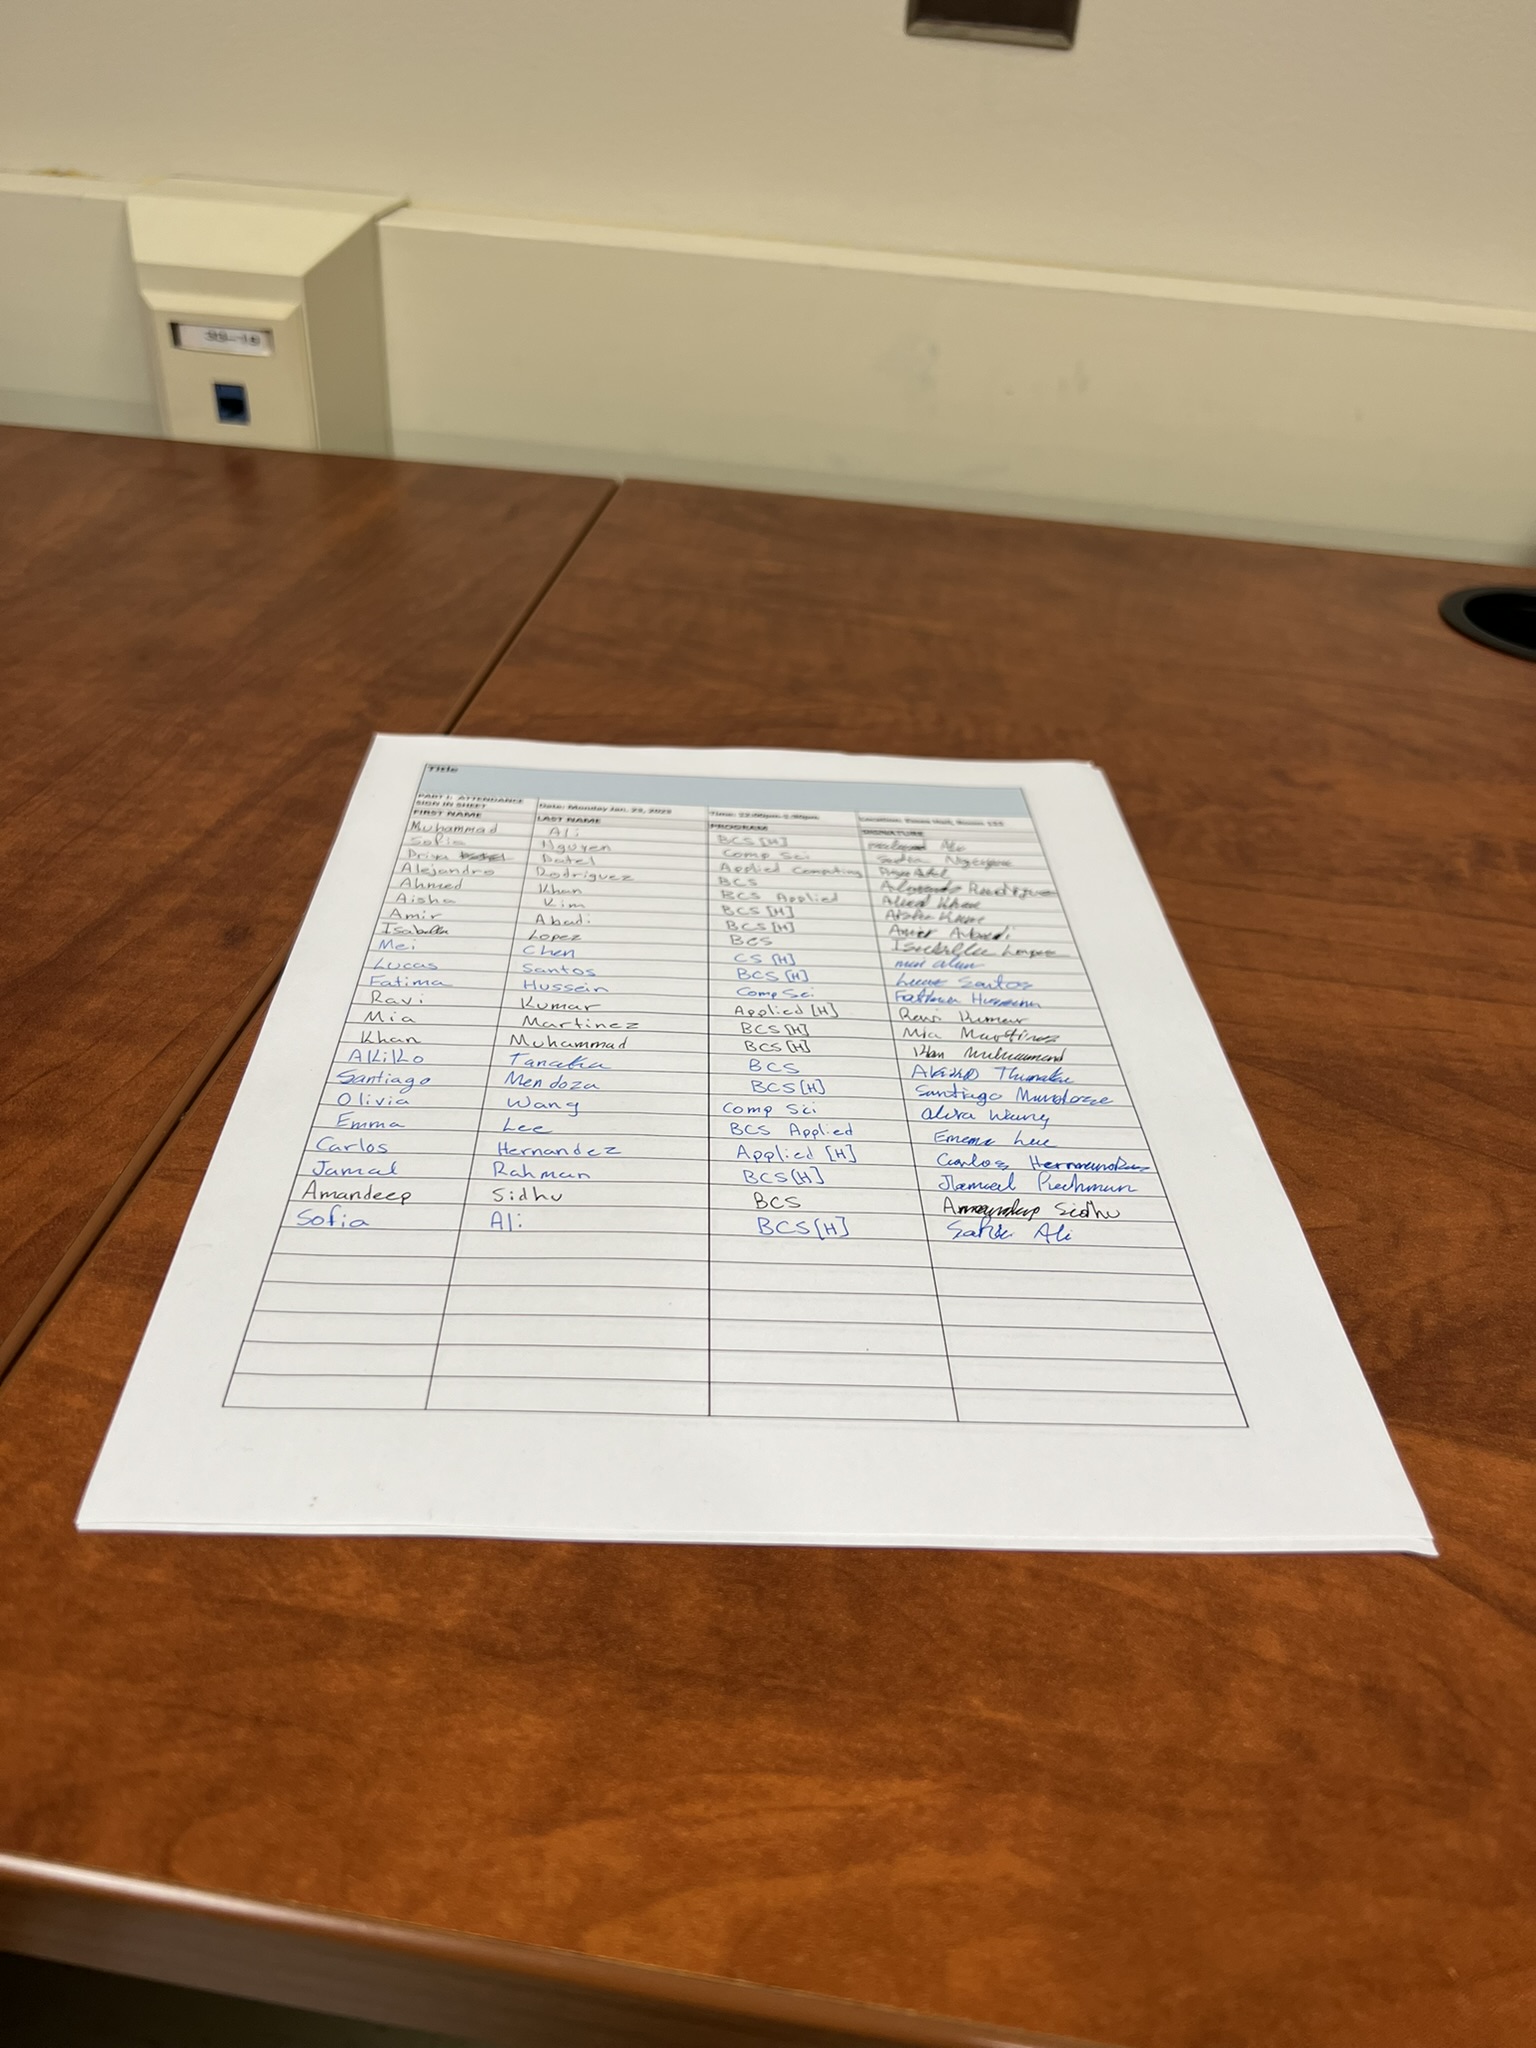 Title
PART I: ATTENDANCE SIGN IN SHEET Date: Monday Jan. 23, 2023 Time: 12:00pm-1:30pm Location: Room 122
FIRST NAME LAST NAME PROGRAM SIGNATURE
Muhammad Ali BCS [H]
Sofia Nguyen Comp Sci Sofia Nguyen
Priya Patel Applied Computing
Alejandro Rodriguez BCS Alejandro Rodriguez
Ahmed Khan BCS Applied Ahmed Khan
Aisha Kim BCS [H] Aisha Kim
Amir Abadi BCS [H] Amir Abadi
Isabella Lopez BCS Isabella Lopez
Mei Chen CS [H] mei chen
Lucas Santos BCS [H] Lucas Santos
Fatima Hussein Comp Sci Fatima Hussein
Ravi Kumar Applied [H] Ravi Kumar
Mia Martinez BCS [H] Mia Martinez
Khan Muhammad BCS [H] Khan Muhammad
Akiko Tanaka BCS Akiko Tanaka
Santiago Mendoza BCS [H] Santiago Mendoza
Olivia Wang Comp Sci Olivia Wang
Emma Lee BCS Applied Emma Lee
Carlos Hernandez Applied [H] Carlos Hernandez
Jamal Rahman BCS [H] Jamal Rahman
Amandeep Sidhu BCS Amandeep Sidhu
Sofia Ali BCS [H] Sofia Ali